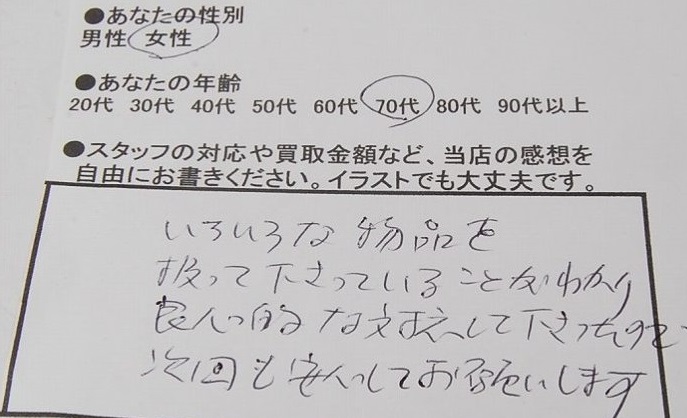 ●あなたの性別
男性 女性
●あなたの年齢
20代 30代 40代 50代 60代 70代 80代 90代以上
●スタッフの対応や買取金額など、当店の感想を
自由にお書きください。イラストでも大丈夫です。
いろいろな物品を
扱って下さっていることがわかり
良心的な対応して下さったので
次回も安心してお願いします